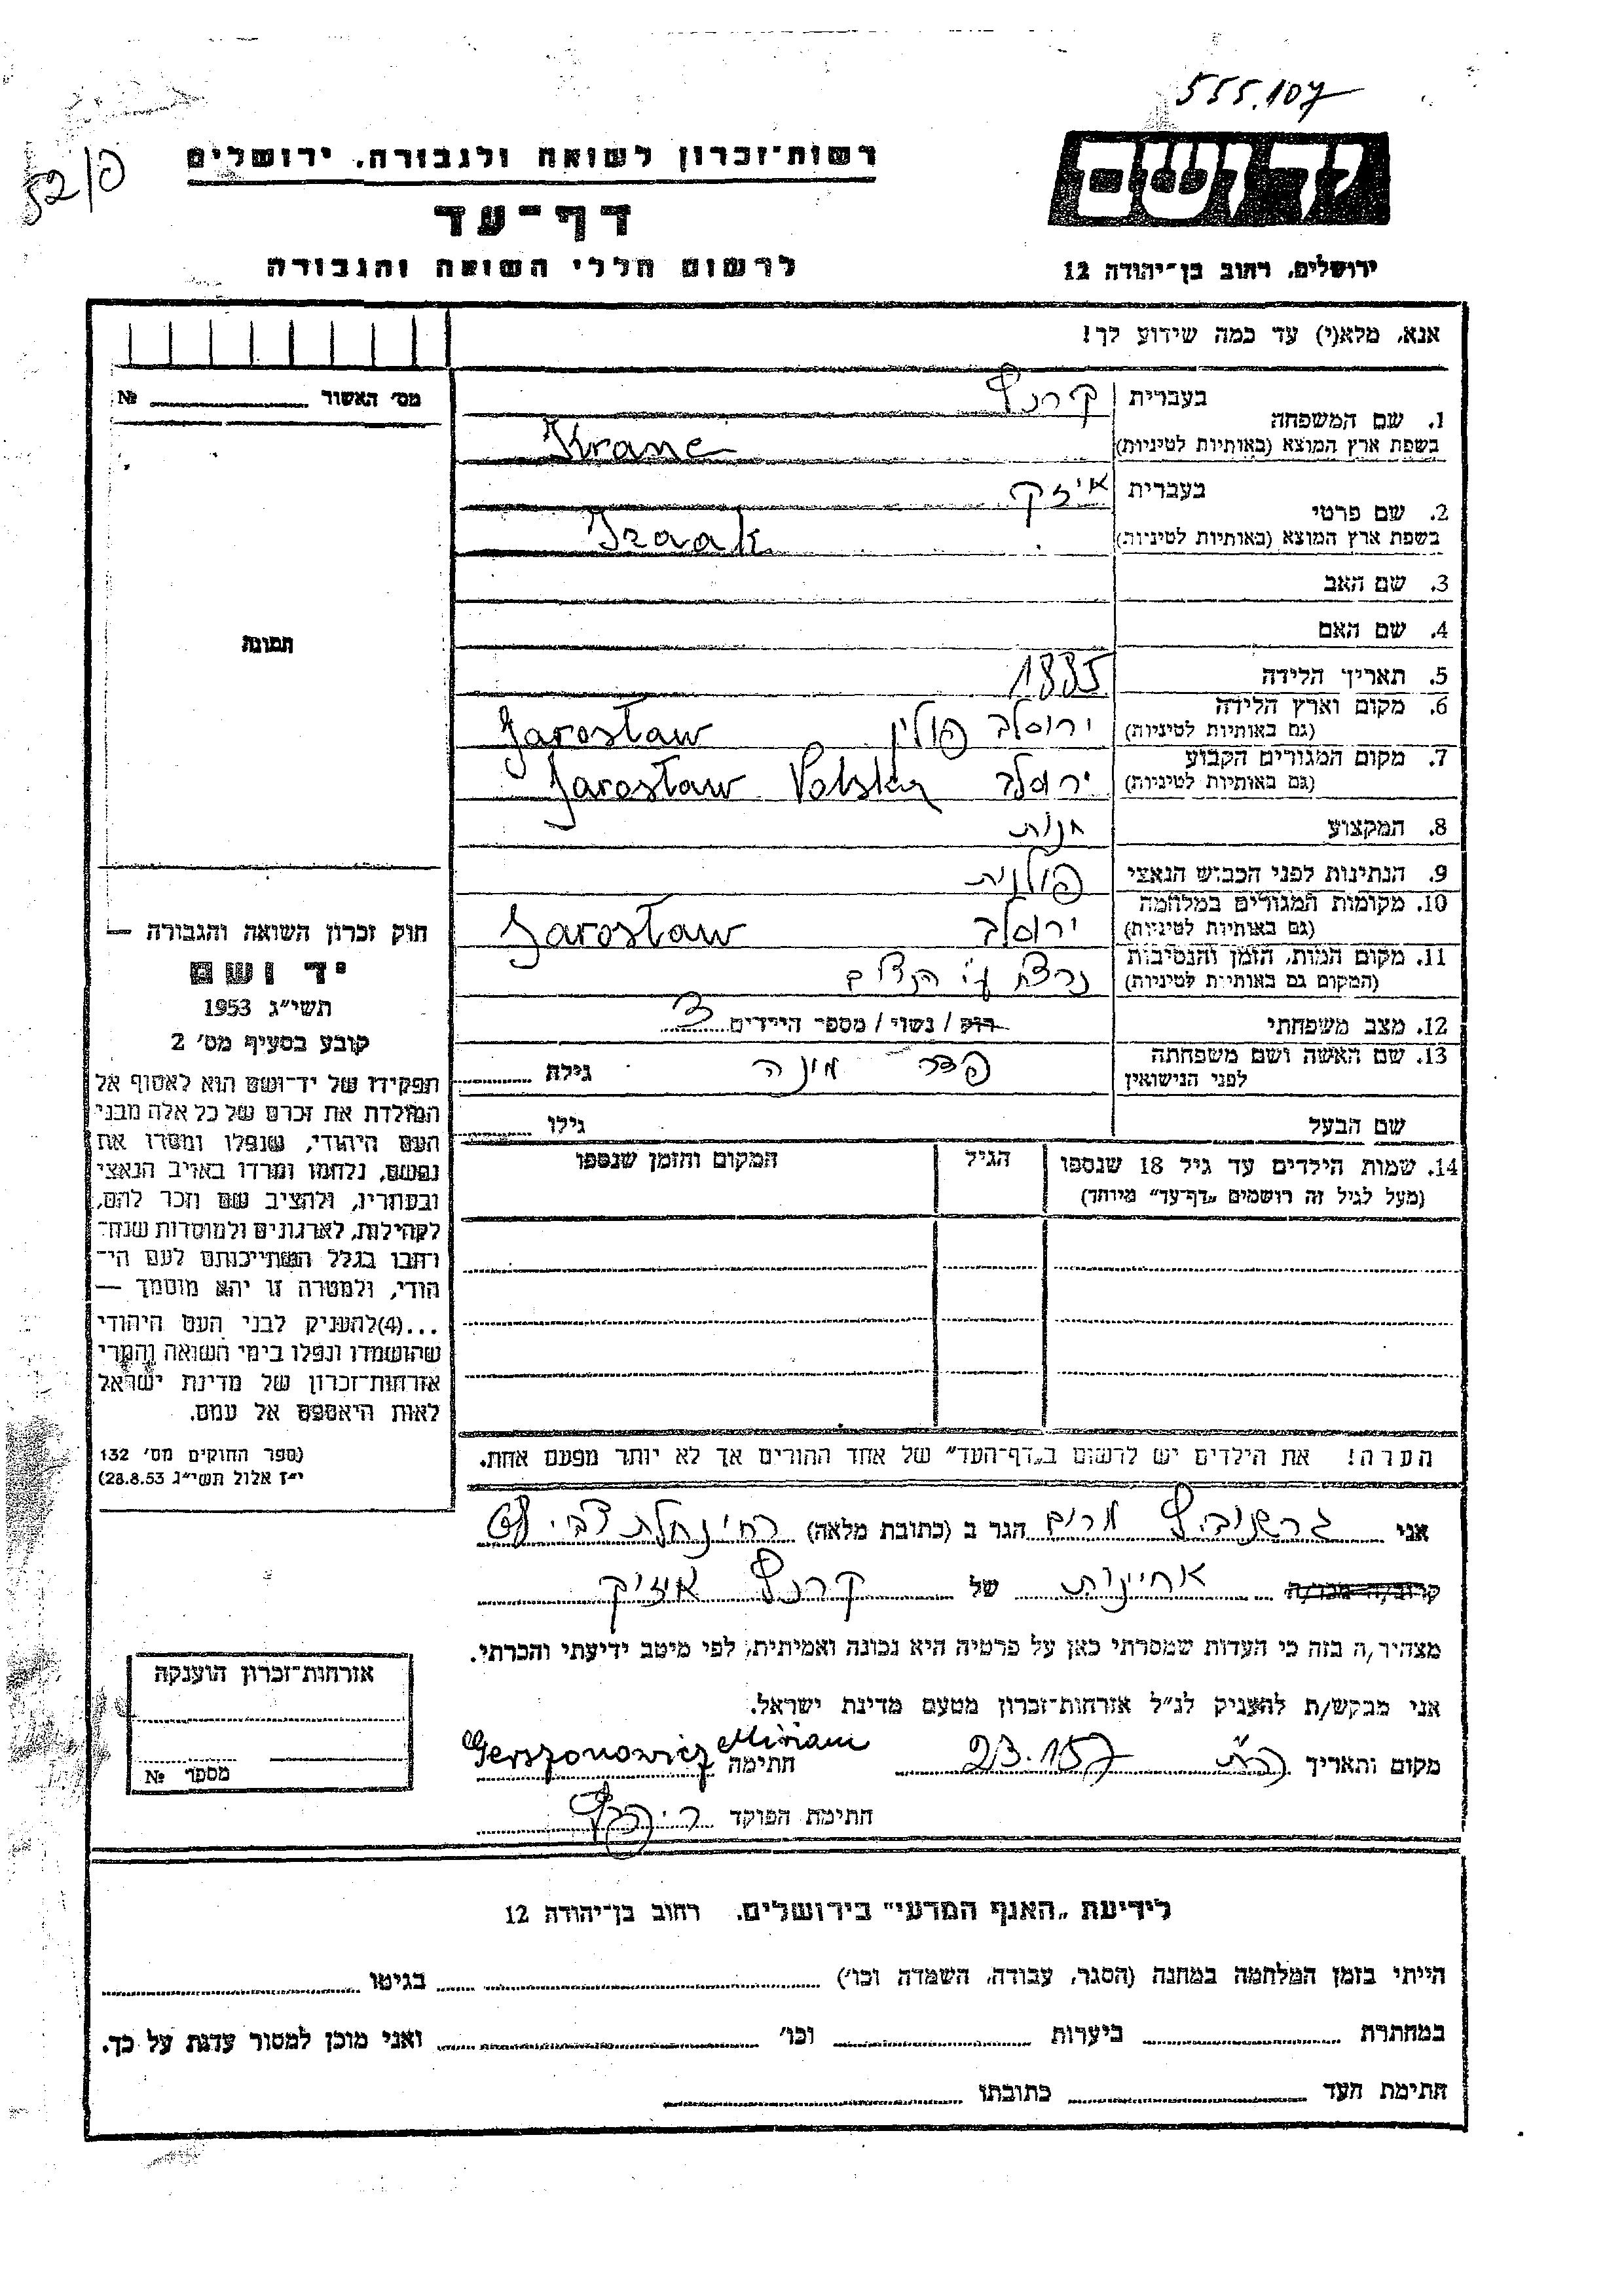 555.107
52/פ
יד ושם
רשות־זכרון לשואה ולגבורה. ירושלים
דף־עד
לרשום חללי השואה והגבורה
ירושלים, רחוב בן־יהודה 12
אנא, מלא(י) עד כמה שידוע לך!
מס׳ האשור № 
1. שם המשפחה בעברית קרנץ
בשפת ארץ המוצא (באותיות לטיניות) Kranc
2. שם פרטי בעברית איזק
בשפת ארץ המוצא (באותיות לטיניות) Izaak
3. שם האב
4. שם האם
תמונה
5. תאריך הלידה 1885
6. מקום וארץ הלידה (גם באותיות לטיניות) ירוסלב פולין Jarosław
7. מקום המגורים הקבוע (גם באותיות לטיניות) ירוסלב Polska Jarosław
8. המקצוע חנות
9. הנתינות לפני הכבוש הנאצי פולנית
10. מקומות המגורים במלחמה (גם באותיות לטיניות) ירוסלב Jarosław
11. מקום המות, הזמן והנסיבות (המקום גם באותיות לטיניות) נרצח ע״י הנאצים
12. מצב משפחתי רוק / נשוי / מספר הילדים 3
13. שם האשה ושם משפחתה לפני הנישואין מינה גילה
שם הבעל גילו
14. שמות הילדים עד גיל 18 שנספו הגיל המקום והזמן שנספו
(מעל לגיל זה רושמים „דף־עד״ מיוחד)
חוק זכרון השואה והגבורה —
יד ושם
תשי״ג 1953
קובע בסעיף מס׳ 2
תפקידו של יד־ושם הוא לאסוף אל
המולדת את זכרם של כל אלה מבני
העם היהודי, שנפלו ומסרו את
נפשם, נלחמו ומרדו באויב הנאצי
ובעוזריו, ולהציב שם וזכר להם,
לקהילות, לארגונים ולמוסדות שנח־
רבו בגלל השתייכותם לעם הי־
הודי, ולמטרה זו יהא מוסמך —
...(4)להעניק לבני העם היהודי
שהושמדו ונפלו בימי השואה והמרי
אזרחות־זכרון של מדינת ישראל
לאות היאספם אל עמם.
(ספר החוקים מס׳ 132
י״ז אלול תשי״ג 28.8.53)
הערה! את הילדים יש לרשום ב„דף־העד״ של אחד ההורים אך לא יותר מפעם אחת.
אני גרשוניביץ מרים הגר ב (כתובת מלאה)
קרוב/ה מכר/ה אחיינית של קרנץ איזיק
מצהיר/ה בזה כי העדות שמסרתי כאן על פרטיה היא נכונה ואמיתית, לפי מיטב ידיעתי והכרתי.
אני מבקש/ת להעניק לנ״ל אזרחות־זכרון מטעם מדינת ישראל.
מקום ותאריך 23.1.57 חתימה Gerszonowicz Miriam
חתימת הפוקד
אזרחות־זכרון הוענקה
מספר №
לידיעת „האגף המדעי״ בירושלים. רחוב בן־יהודה 12
הייתי בזמן המלחמה במחנה (הסגר, עבודה, השמדה וכו׳) בגיטו
במחתרת ביערות וכו׳ ואני מוכן למסור עדות על כך.
חתימת העד כתובתו